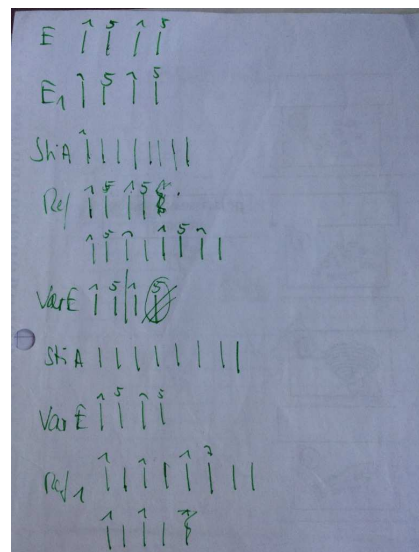 E 1 5 1 5 | | | |
E1 1 5 1 5 | | | |
StiA 1 | | | | | | | |
Ref 1 5 1 5 | | | |
1 5 1 1 5 1 | | | | | | | |
VarE 1 5 1 5 | | | | |
StiA | | | | | | | | |
VarE 1 5 1 5 | | | |
Ref1 1 1 1 | | | | | | | |
1 1 | | | |